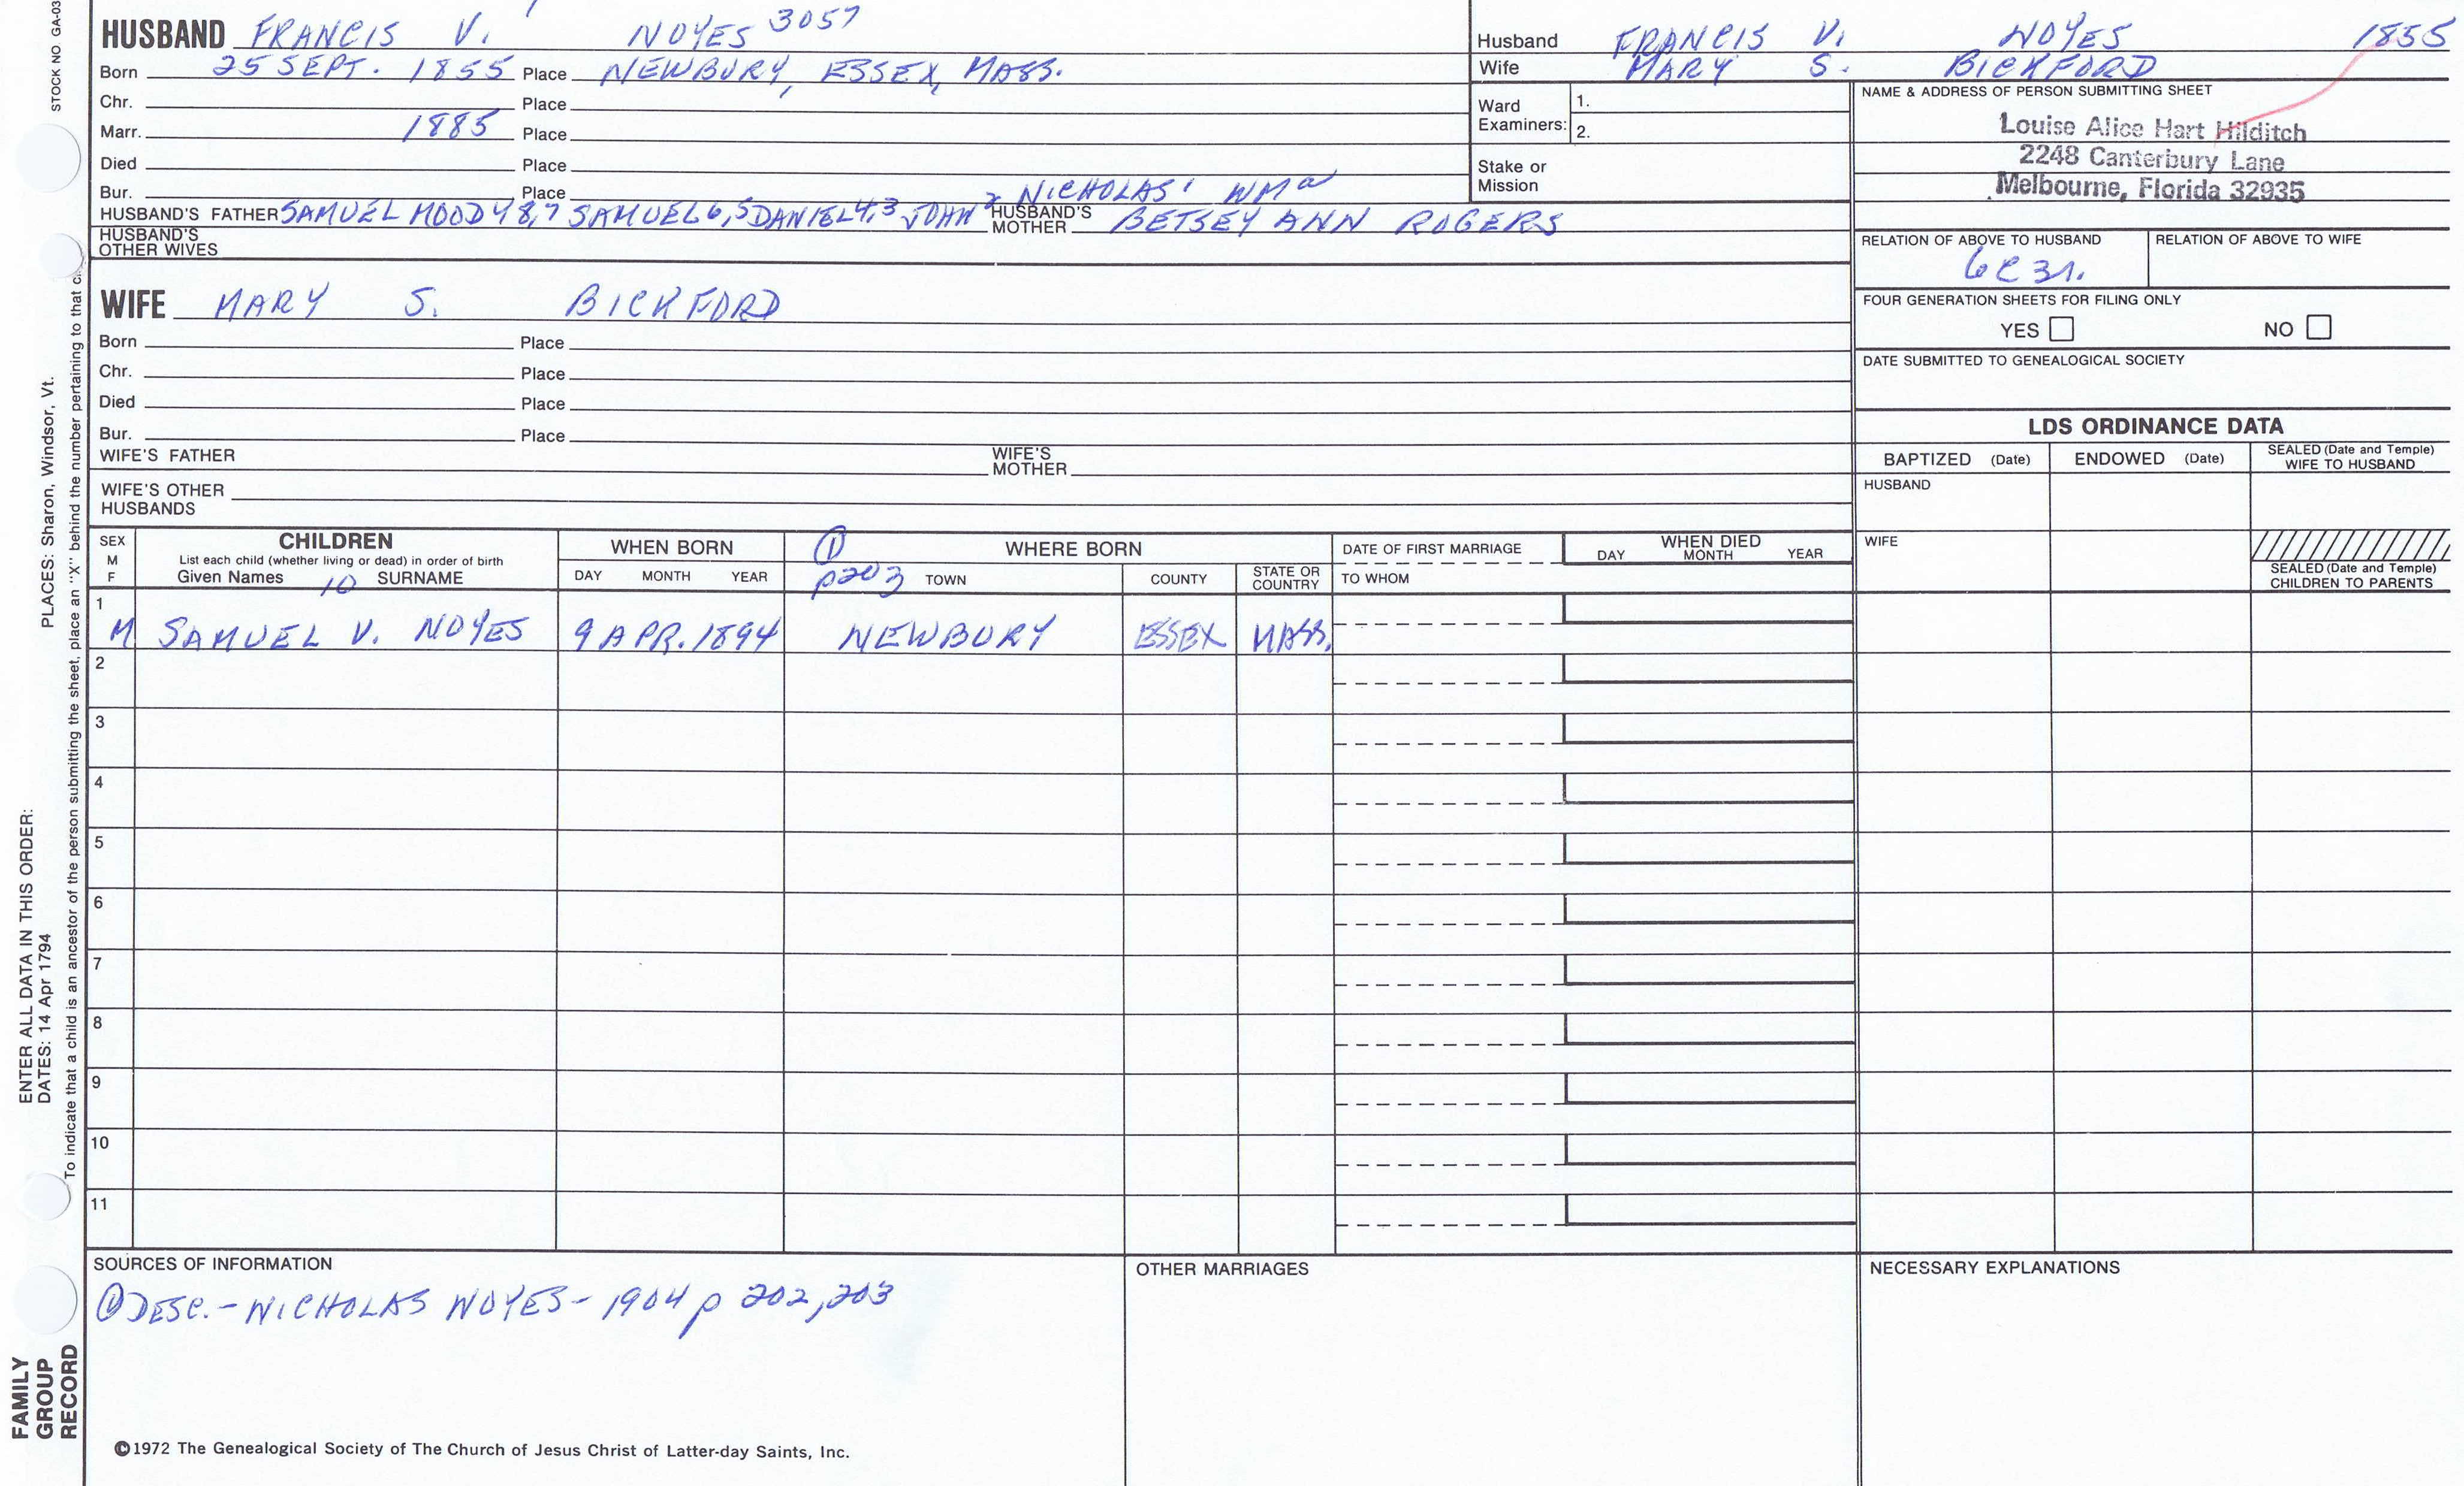 STOCK NO GA-03
HUSBAND FRANCIS V. NOYES 3057
Born 25 SEPT. 1855 Place NEWBURY, ESSEX, MASS.
Chr. Place
Marr. 1885 Place
Died Place
Bur. Place
2 NICHOLAS1 WMa
HUSBAND'S FATHER SAMUEL MOODY 8,7 SAMUEL 6,5 DANIEL 4,3 JOHN HUSBAND'S MOTHER BETSEY ANN ROGERS
HUSBAND'S OTHER WIVES
WIFE MARY S. BICKFORD
Born Place
Chr. Place
Died Place
Bur. Place
WIFE'S FATHER WIFE'S MOTHER
WIFE'S OTHER HUSBANDS
Husband FRANCIS V. NOYES 1855
Wife MARY S. BICKFORD
Ward Examiners: 1.
2.
Stake or Mission
NAME & ADDRESS OF PERSON SUBMITTING SHEET
Louise Alice Hart Hilditch
2248 Canterbury Lane
Melbourne, Florida 32935
RELATION OF ABOVE TO HUSBAND RELATION OF ABOVE TO WIFE
6C3r.
FOUR GENERATION SHEETS FOR FILING ONLY
YES NO
DATE SUBMITTED TO GENEALOGICAL SOCIETY
LDS ORDINANCE DATA
BAPTIZED (Date) ENDOWED (Date) SEALED (Date and Temple) WIFE TO HUSBAND
HUSBAND
WIFE
SEALED (Date and Temple) CHILDREN TO PARENTS
SEX M F
CHILDREN
List each child (whether living or dead) in order of birth
Given Names 10 SURNAME
WHEN BORN
DAY MONTH YEAR
① p203
WHERE BORN
TOWN COUNTY STATE OR COUNTRY
DATE OF FIRST MARRIAGE
TO WHOM
WHEN DIED
DAY MONTH YEAR
1
M SAMUEL V. NOYES 9 APR. 1894 NEWBURY ESSEX MASS.
2
3
4
5
6
7
8
9
10
11
SOURCES OF INFORMATION
① DESC. - NICHOLAS NOYES - 1904 p 202, 203
OTHER MARRIAGES
NECESSARY EXPLANATIONS
©1972 The Genealogical Society of The Church of Jesus Christ of Latter-day Saints, Inc.
FAMILY GROUP RECORD
ENTER ALL DATA IN THIS ORDER:
DATES: 14 Apr 1794
PLACES: Sharon, Windsor, Vt.
To indicate that a child is an ancestor of the person submitting the sheet, place an "X" behind the number pertaining to that